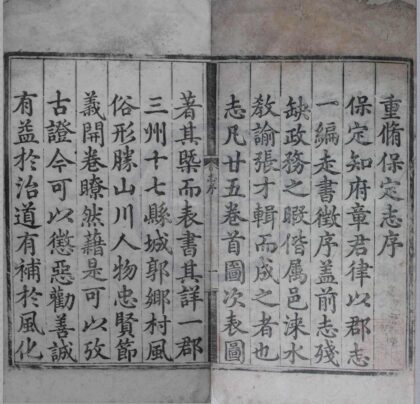 重脩保定志序
保定知府章君律以郡志
一編走書徵序蓋前志殘
缺政務之暇偕属邑淶水
教諭張才輯而成之者也
志凡廿五卷首圖次表圖
著其槩而表書其詳一郡
三州十七縣城郭鄉村風
俗形勝山川人物忠賢節
義開卷瞭然藉是可以攷
古證今可以懲惡勸善誠
有益於治道有補於風化